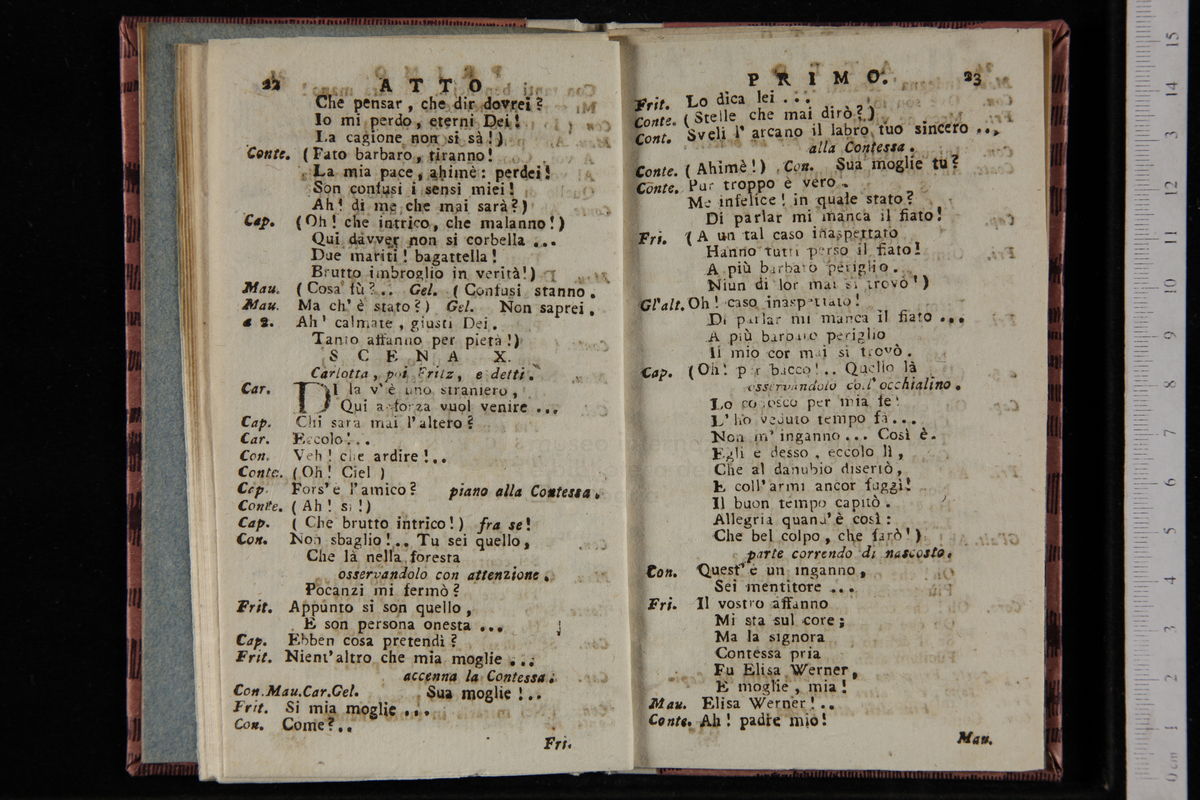 22 ATTO
Che pensar, che dir dovrei?
Io mi perdo, eterni Dei!
La cagione non si sà!)
Conte. (Fato barbaro, tiranno!
La mia pace, ahimè: perdei!
Son confusi i sensi miei!
Ah! di me che mai sarà?)
Cap. (Oh! che intrico, che malanno!)
Qui davver non si corbella ...
Due mariti! bagattella!
Brutto imbroglio in verità!)
Mau. (Cosa fù?.. Gel. (Confusi stanno.
Mau. Ma ch'è stato?) Gel. Non saprei.
a 2. Ah! calmate, giusti Dei.
Tanto affanno per pietà!)
SCENA X.
Carlotta, poi Fritz, e detti.
Car. DI la v'è uno straniero,
Qui a forza vuol venire ...
Cap. Chi sara mai l'altero?
Car. Eccolo!..
Con. Veh! che ardire!..
Conte. (Oh! Ciel )
Cap. Fors'e l'amico? piano alla Contessa.
Conte. (Ah! si!)
Cap. (Che brutto intrico!) fra se!
Con. Non sbaglio!.. Tu sei quello,
Che là nella foresta
osservandolo con attenzione.
Pocanzi mi fermò?
Frit. Appunto si son quello,
E son persona onesta ...
Cap. Ebben cosa pretendi?
Frit. Nient'altro che mia moglie ...
accenna la Contessa.
Con.Mau.Car.Gel. Sua moglie!..
Frit. Si mia moglie ...
Con. Come?..
Fri.
PRIMO. 23
Frit. Lo dica lei ...
Conte. (Stelle che mai dirò?)
Cont. Sveli l'arcano il labro tuo sincero ...
alla Contessa.
Conte. (Ahimè!) Con. Sua moglie tu?
Conte. Pur troppo è vero.
Me infelice! in quale stato?
Di parlar mi manca il fiato!
Fri. (A un tal caso inaspettato
Hanno tutti perso il fiato!
A più barbaro periglio.
Niun di lor mai si trovò!)
Gl'alt. Oh! caso inaspettato!
Di parlar mi manca il fiato ...
A più barbaro periglio
Il mio cor mai si trovò.
Cap. (Oh! per bacco!.. Quello là
osservandolo coll'occhialino.
Lo conosco per mia fe!
L'ho veduto tempo fà...
Non m'inganno... Così è.
Egli è desso, eccolo lì,
Che al danubio disertò,
E coll'armi ancor fuggì!
Il buon tempo capitò.
Allegria quand'è così:
Che bel colpo, che farò!)
parte correndo di nascosto.
Con. Quest'è un inganno,
Sei mentitore ...
Fri. Il vostro affanno
Mi sta sul core;
Ma la signora
Contessa pria
Fu Elisa Werner,
E moglie, mia!
Mau. Elisa Werner!..
Conte. Ah! padre mio!
Mau.